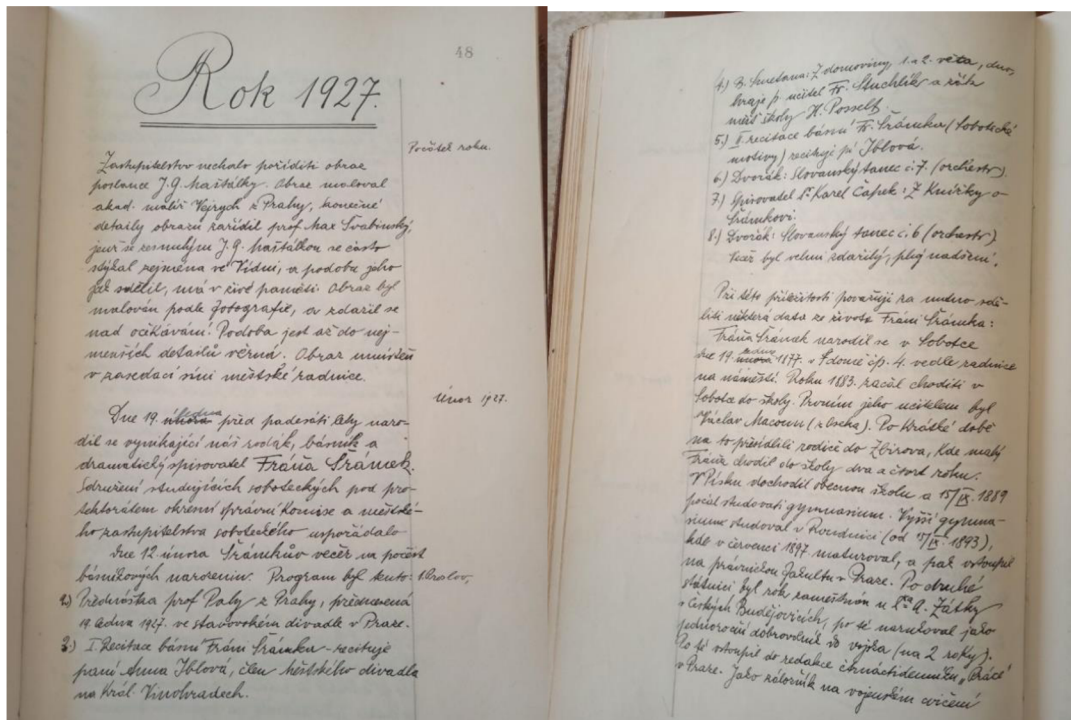 48
Rok 1927.
Počátek roku.
Zastupitelstvo nechalo poříditi obraz
poslance J.G. Maštálky. Obraz maloval
akad. malíř Vejrych z Prahy, konečné
detaily obrazu zařídil prof Max Švabinský,
jenž se zesnulým J.G. Maštálkou se často
stýkal zejména ve Vídni, a podobu jeho
jak sdělil, má v živé paměti. Obraz byl
malován podle fotografie, a zdařil se
nad očekávání. Podoba jest až do nej-
menších detailů věrná. Obraz umístěn
v zasedací síni městské radnice.
Únor 1927.
Dne 19. února ledna před padesáti lety naro-
dil se vynikající náš rodák, básník a
dramatický spisovatel Fráňa Šrámek.
Sdružení studujících soboteckých pod pro-
tektorátem okresní správní komise a městské-
ho zastupitelstva soboteckého uspořádalo
dne 12 února Šrámkův večer na počest
básníkových narozenin. Program byl tento: 1. Proslov,
2.) Přednáška prof Paly z Prahy, přednesená
19. ledna 1927. ve stavovském divadle v Praze.
3.) I. Recitace básní Fráni Šrámka - recituje
paní Anna Iblová, člen Městského divadla
na Král. Vinohradech.
4.) B. Smetana: Z domoviny, 1. a 2. věta, duo,
hraje p. učitel Fr. Stuchlík a
měšť. školy K. Posselt.
5.) II. recitace básní Fr. Šrámka (Sobotecké
motivy) recituje pí Iblová.
6.) Dvořák: Slovanský tanec č. 7. (orchestr)
7.) Spisovatel Dr Karel Čapek: Z knížky o
Šrámkovi.
8.) Dvořák: Slovanský tanec č. 6 (orchestr)
Večer byl velmi zdařilý, plný nadšení.
Při této příležitosti považuji za nutno sdě-
liti některá data ze života Fráni Šrámka:
Fráňa Šrámek narodil se v Sobotce
dne 19. února ledna 1877. v domě čp. 4. vedle radnice
na náměstí. Roku 1883. začal choditi v
Sobotce do školy. Prvním jeho učitelem byl
Václav Macoun (z Lhecha). Po krátké době
na to přesídlili rodiče do Zbirova, kde malý
Fráňa chodil do školy dva a čtvrt roku.
V Písku dochodil obecnou školu a 15/IX. 1889
počal studovati gymnasium. Vyšší gymna-
sium studoval v Roudnici (od 15/IX. 1893),
kde v červenci 1897 maturoval, a pak vstoupil
na právnickou fakultu v Praze. Po druhé
státnici byl rok zaměstnán u A. Zátky
v Českých Budějovicích, po té narukoval jako
jednoroční dobrovolník na vojnu (na 2 roky).
Po té vstoupil do redakce čtrnáctidenníku „Práce“
v Praze. Jako záložník na vojenském cvičení